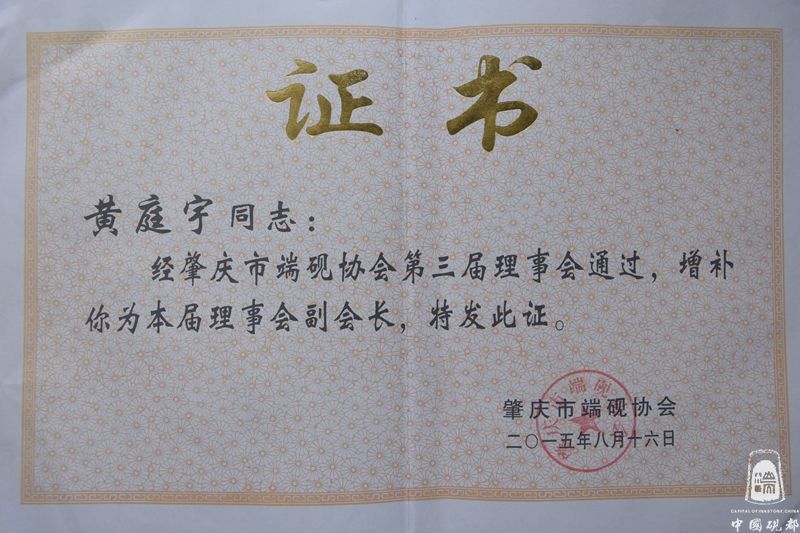 证书
黄庭宇同志：
经肇庆市端砚协会第三届理事会通过，增补
你为本届理事会副会长，特发此证。
肇庆市端砚协会
二〇一五年八月十六日
CAPITAL OF INKSTONE, CHINA
中國硯都